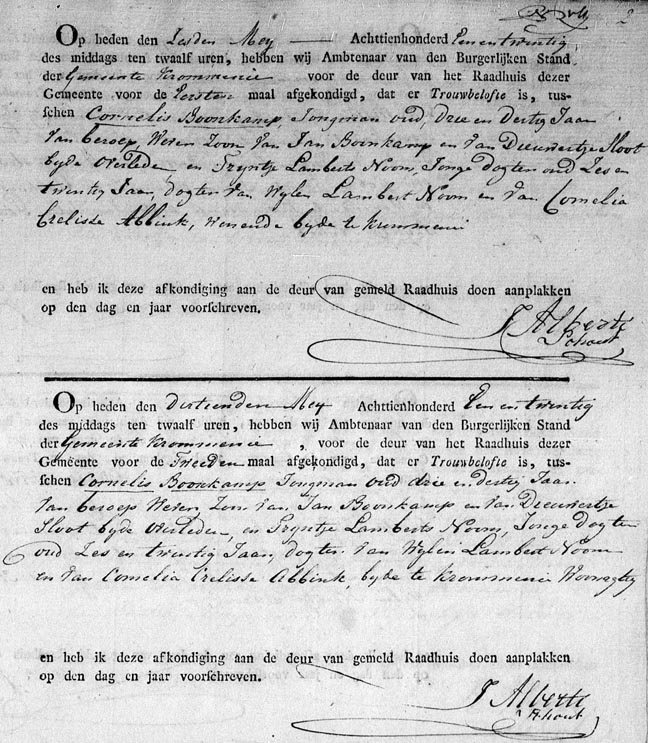 2
Op heden den Zesden Mey Achttienhonderd Een en twintig
des middags ten twaalf uren, hebben wij Ambtenaar van den Burgerlijken Stand
der Gemeente Krommenie voor de deur van het Raadhuis dezer
Gemeente voor de Eersten maal afgekondigd, dat er Trouwbelofte is, tus-
schen Cornelis Boonkamp, Jongman oud, drie en dertig Jaar
van beroep, Wever, Zoon, van Jan Boonkamp en van Dieuwertje Sloot
byde overleden, en Tryntje Lamberts Noom, Jonge dogter oud Zes en
twentig Jaar, dogter van wylen Lambert Noom en van Cornelia
Crelisse Abbink, wonende byde te Krommenie
en heb ik deze afkondiging aan de deur van gemeld Raadhuis doen aanplakken
op den dag en jaar voorschreven.
J Alberts
Schout
Op heden den Dertienden Mey Achttienhonderd Een en twintig
des middags ten twaalf uren, hebben wij Ambtenaar van den Burgerlijken Stand
der Gemeente Krommenie, voor de deur van het Raadhuis dezer
Gemeente voor de Tweeden maal afgekondigd, dat er Trouwbelofte is, tus-
schen Cornelis Boonkamp Jongman oud drie en dertig Jaar
van beroep Wever Zoon van Jan Boonkamp en van Dieuwertje
Sloot byde overleden, en Tryntje Lamberts Noom, Jonge dogter
oud Zes en twentig Jaar, dogter van wylen Lambert Noom
en van Cornelia Crelisse Abbink, byde te Krommenie Woonagtig
en heb ik deze afkondiging aan de deur van gemeld Raadhuis doen aanplakken
op den dag en jaar voorschreven.
J Alberts
Schout